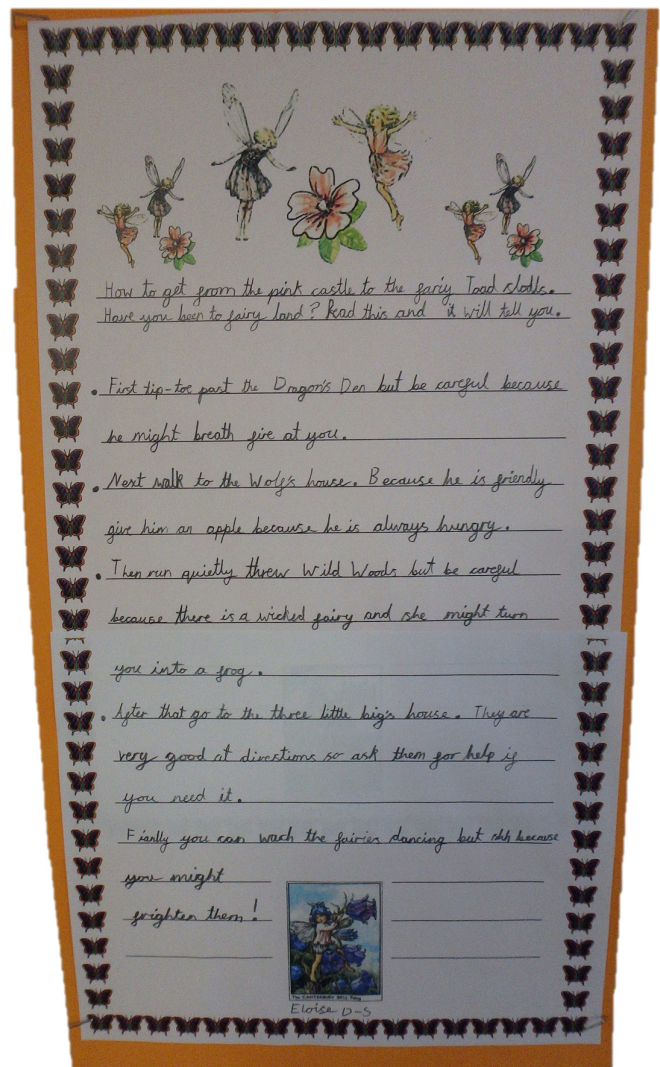 How to get from the pink castle to the fairy Toad stolls.
Have you been to fairy land? Read this and it will tell you.
• First tip-toe past the Dragon's Den but be careful because
he might breath fire at you.
• Next walk to the Wolf's house. Because he is friendly
give him an apple because he is always hungry.
• Then run quietly threw Wild Woods but be careful
because there is a wicked fairy and she might turn
you into a frog.
• After that go to the three little big's house. They are
very good at directions so ask them for help if
you need it.
Fianlly you can wach the fairies dancing but shh because
you might
frighten them!
The CANTERBURY BELL Fairy
Eloise D-S